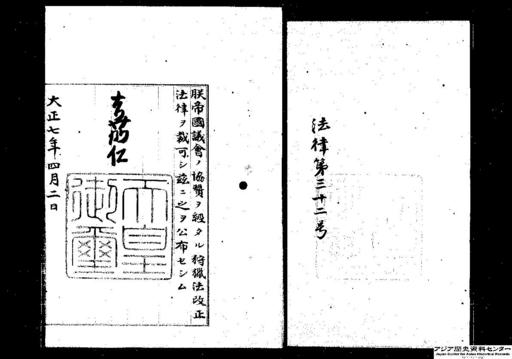 法律第三十二号
朕帝國議會ノ協賛ヲ経タル狩猟法改正
法律ヲ裁可シ茲ニ之ヲ公布セシム
嘉仁
天皇
御璽
大正七年四月二日
アジア歴史資料センター
Japan Center for Asian Historical Records